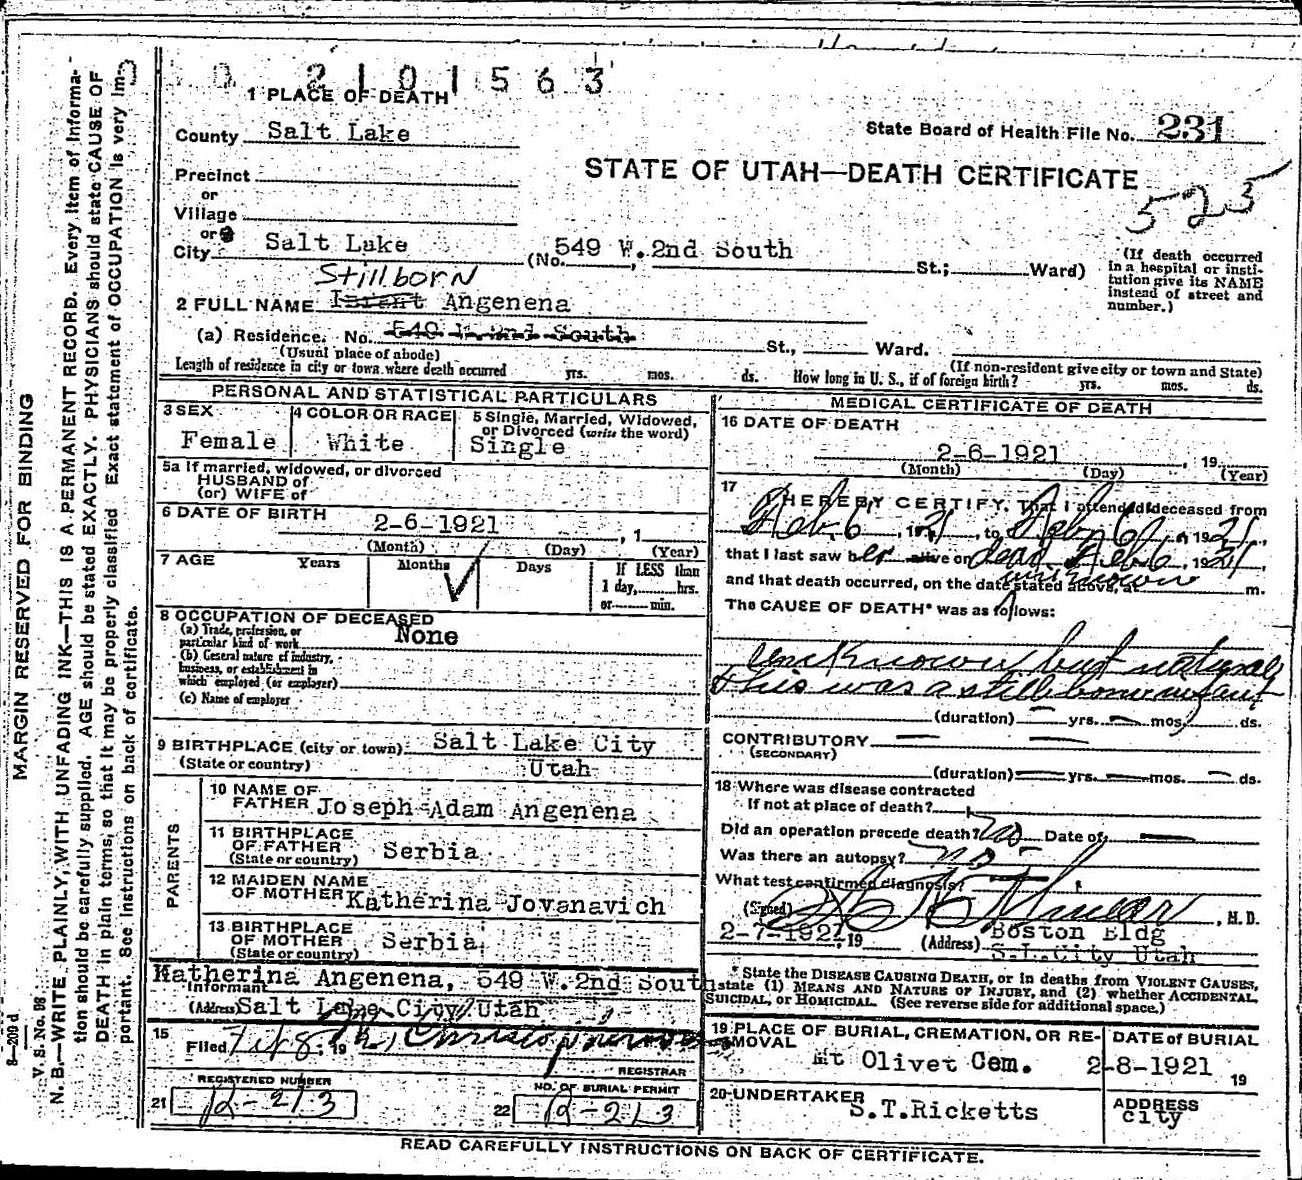 2101563
1 PLACE OF DEATH
County Salt Lake
State Board of Health File No. 231
STATE OF UTAH—DEATH CERTIFICATE
525
Precinct
or
Village
or
City Salt Lake (No. 549 W. 2nd South St.; Ward)
(If death occurred in a hospital or institution give its NAME instead of street and number.)
Stillborn
2 FULL NAME Infant Angenena
(a) Residence. No. 549 W. 2nd South St., Ward.
(Usual place of abode) (If non-resident give city or town and State)
Length of residence in city or town where death occurred yrs. mos. ds. How long in U. S., if of foreign birth? yrs. mos. ds.
PERSONAL AND STATISTICAL PARTICULARS
3 SEX 4 COLOR OR RACE 5 Single, Married, Widowed, or Divorced (write the word)
Female White Single
5a If married, widowed, or divorced
HUSBAND of
(or) WIFE of
6 DATE OF BIRTH 2-6-1921 , 1
(Month) (Day) (Year)
7 AGE Years Months Days If LESS than
1 day, hrs.
or min.
8 OCCUPATION OF DECEASED
(a) Trade, profession, or
particular kind of work None
(b) General nature of industry,
business, or establishment in
which employed (or employer)
(c) Name of employer
9 BIRTHPLACE (city or town) Salt Lake City
(State or country) Utah
PARENTS
10 NAME OF
FATHER Joseph Adam Angenena
11 BIRTHPLACE
OF FATHER Serbia
(State or country)
12 MAIDEN NAME
OF MOTHER Katherina Jovanavich
13 BIRTHPLACE
OF MOTHER Serbia
(State or country)
Katherina Angenena, 549 W. 2nd South
Informant
(Address) Salt Lake City Utah
15
Filed Feb 8, 19
REGISTRAR
REGISTERED NUMBER NO. OF BURIAL PERMIT
21 R-213 22 R-213
MEDICAL CERTIFICATE OF DEATH
16 DATE OF DEATH
2-6-1921 , 19
(Month) (Day) (Year)
17 I HEREBY CERTIFY, That I attended deceased from
Feb. 6, 1921, to Feb 6, 1921,
that I last saw her alive on dead Feb 6, 1921,
and that death occurred, on the date stated above, at unknown m.
The CAUSE OF DEATH* was as follows:
unknown but natural
this was a stillborn infant
(duration) yrs. mos. ds.
CONTRIBUTORY
(SECONDARY)
(duration) yrs. mos. ds.
18 Where was disease contracted
If not at place of death?
Did an operation precede death? no Date of
Was there an autopsy? no
What test confirmed diagnosis?
(Signed) , M. D.
2-7-1921, 19 (Address) Boston Bldg
S.L.City Utah
* State the DISEASE CAUSING DEATH, or in deaths from VIOLENT CAUSES,
state (1) MEANS AND NATURE OF INJURY, and (2) whether ACCIDENTAL,
SUICIDAL, or HOMICIDAL. (See reverse side for additional space.)
19 PLACE OF BURIAL, CREMATION, OR REMOVAL DATE of BURIAL
Mt Olivet Cem. 2-8-1921 19
20 UNDERTAKER ADDRESS
S.T.Ricketts City
READ CAREFULLY INSTRUCTIONS ON BACK OF CERTIFICATE.
MARGIN RESERVED FOR BINDING
8—209 d
V. S. No. 98
N. B.—WRITE PLAINLY, WITH UNFADING INK—THIS IS A PERMANENT RECORD. Every item of informa-
tion should be carefully supplied. AGE should be stated EXACTLY. PHYSICIANS should state CAUSE OF
DEATH in plain terms, so that it may be properly classified. Exact statement of OCCUPATION is very im-
portant. See instructions on back of certificate.